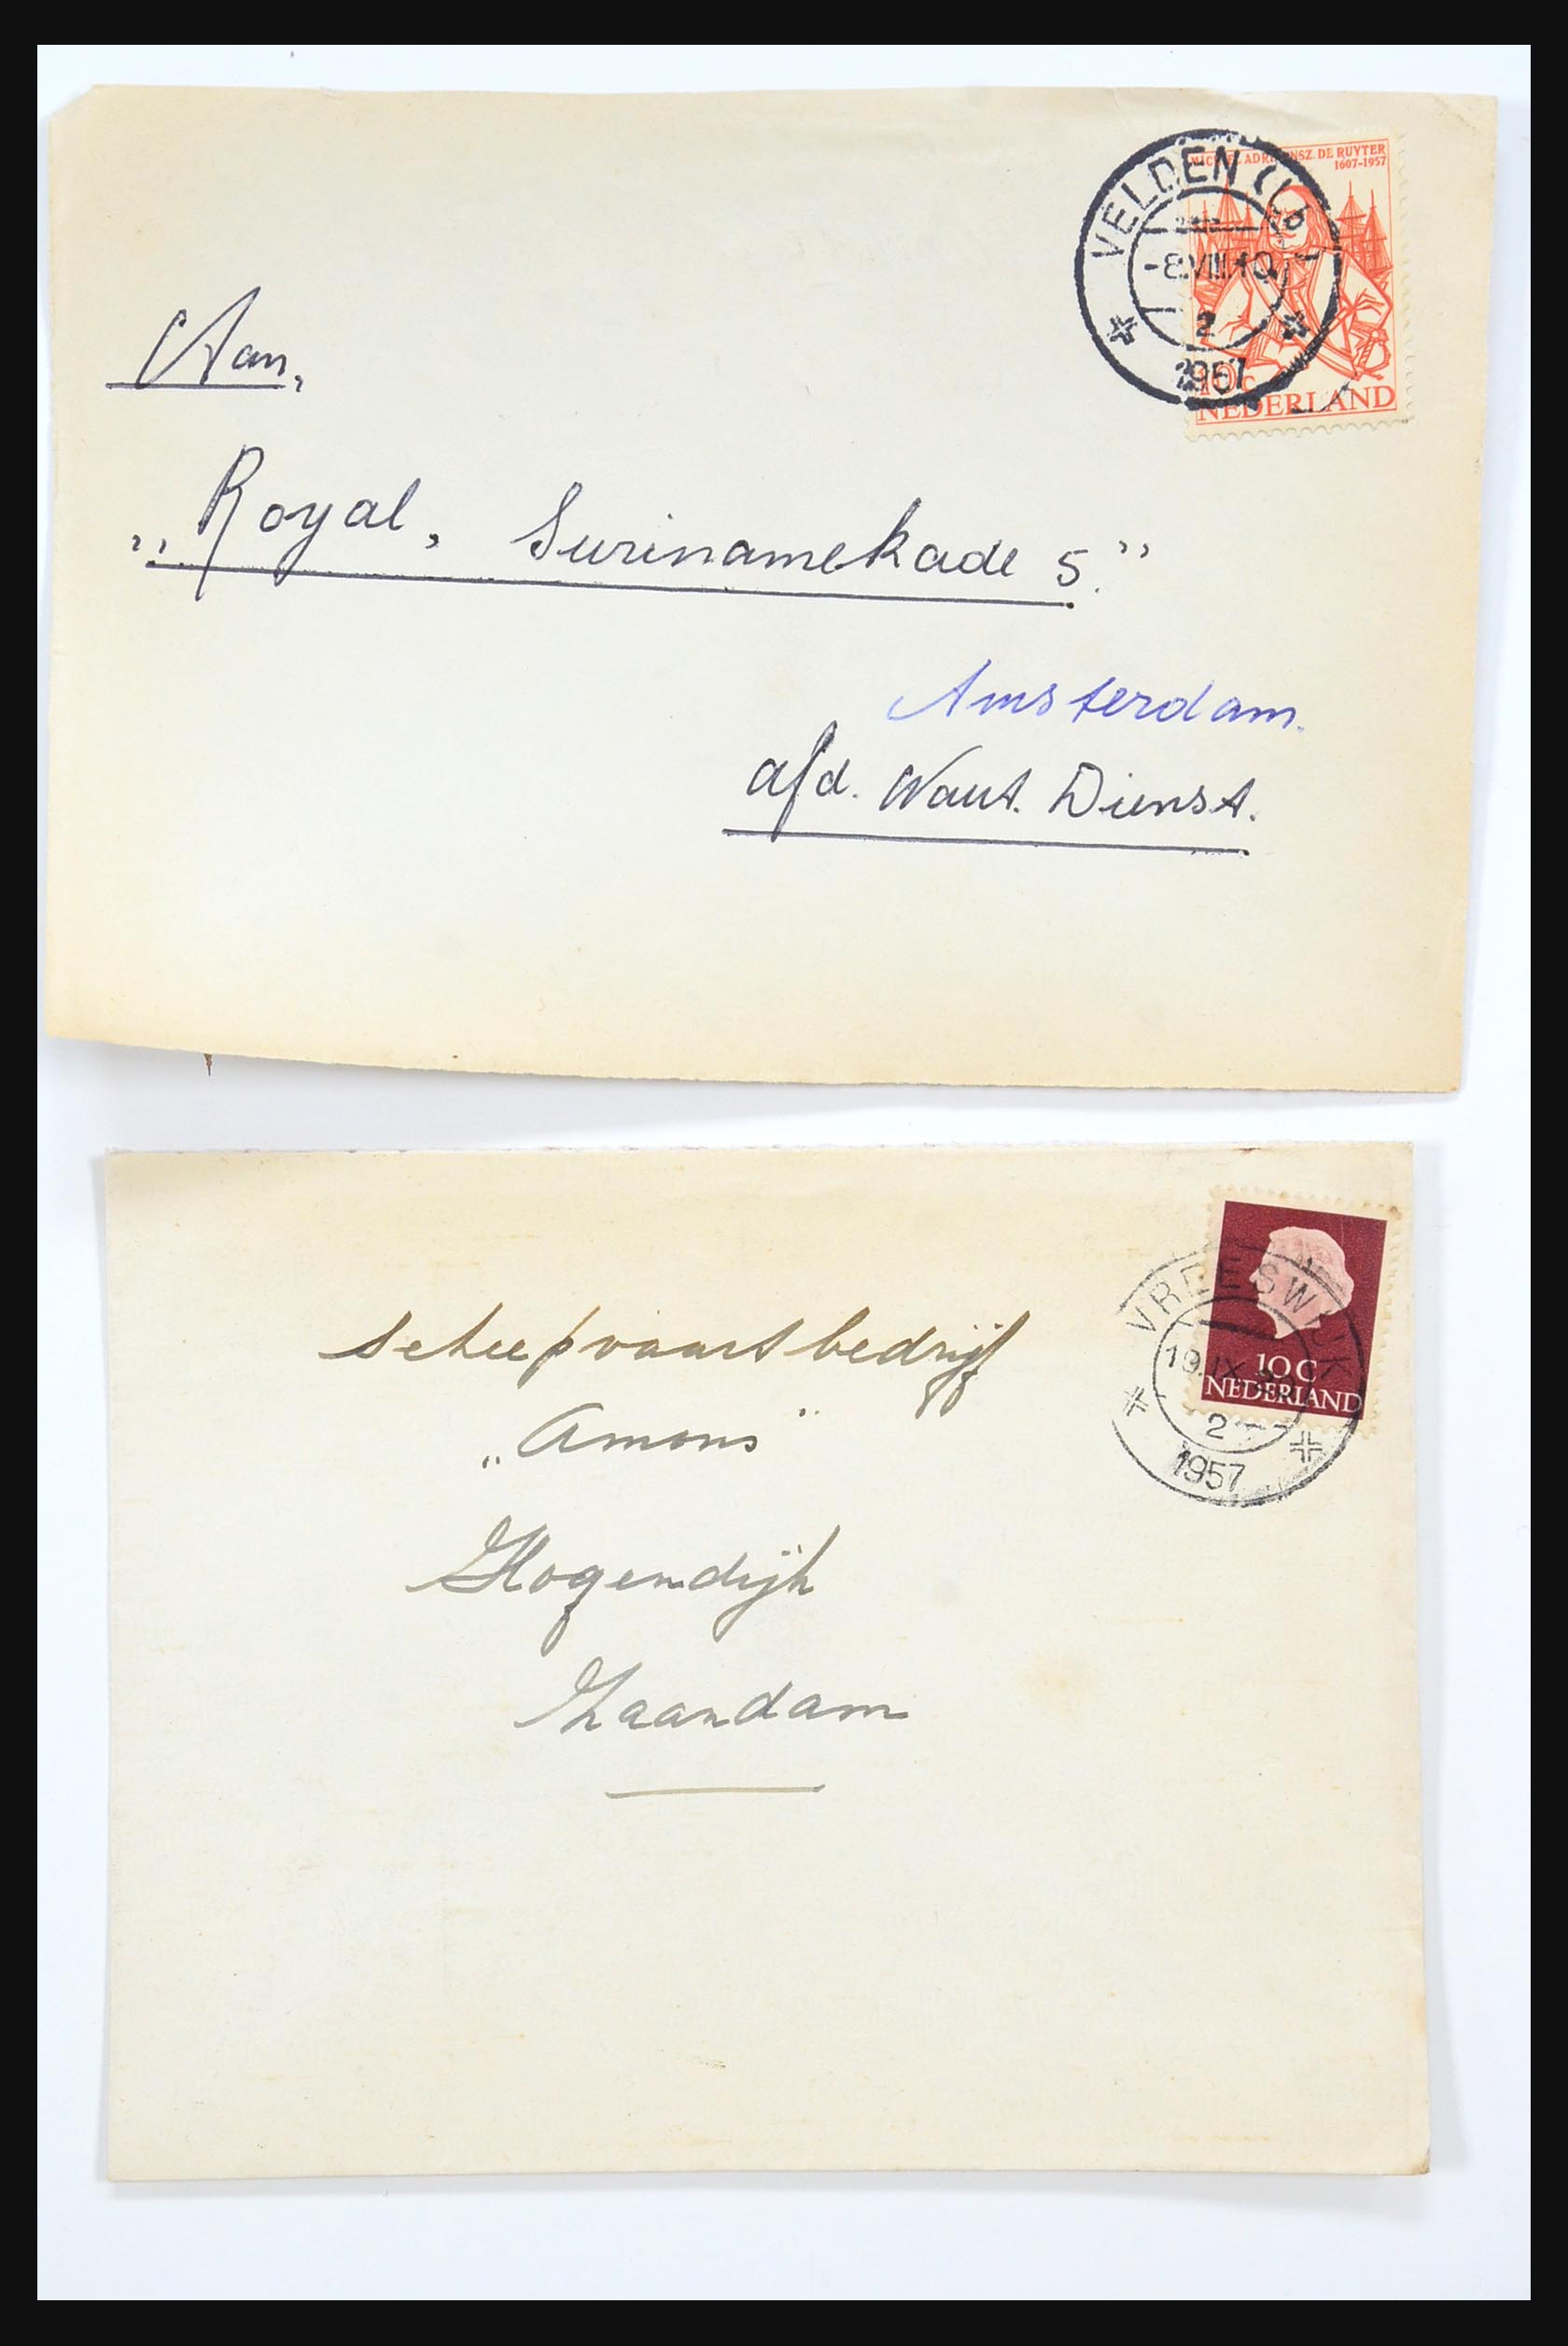 MICHIEL ADRIAENSZ. DE RUYTER
1607-1957
VELDEN (Lb)
-8.VIII.10
2
1957
10c
NEDERLAND
Aan,
„Royal, Surinamekade 5."
Amsterdam.
afd. Naut. Dienst.
VREESWIJK
19.IX
2
1957
10C
NEDERLAND
scheepvaartbedrijf
„Amons"
Hogendijk
Zaandam